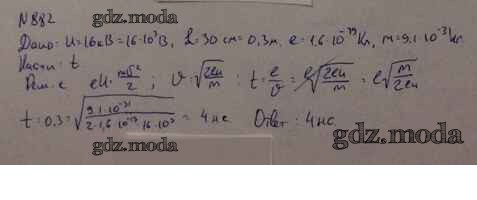 gdz.moda
N 882
Дано: U=16кВ=16·10³В, ℓ=30 см=0,3м, e=1,6·10⁻¹⁹Кл, m=9,1·10⁻³¹кг.
Найти: t
Реш-е eU=mυ²/2; υ=√(2eU/m); t=ℓ/υ=ℓ/√(2eU/m)=ℓ√(m/2eU)
t=0,3·√(9,1·10⁻³¹/2·1,6·10⁻¹⁹·16·10³)=4нс Ответ: 4нс.
gdz.moda gdz.moda